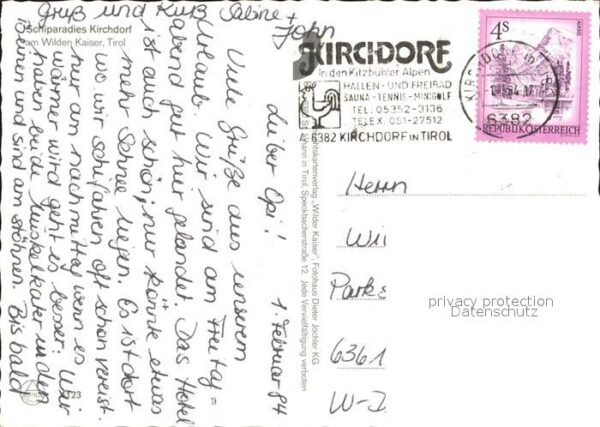 Schiparadies Kirchdorf
am Wilden Kaiser, Tirol
1. Februar 84
Lieber Opi!
Viele Grüße aus unserem
Urlaub. Wir sind am Freitag-
abend gut hier gelandet. Das Hotel
ist auch schön, nur könnte etwas
mehr Schnee liegen. Es ist dort
wo wir schifahren oft schon vereist.
Nur am nachmittag wenn es
wärmer wird geht es besser. Wir
haben beide Muskelkater in den
Beinen und sind am stöhnen. Bis bald
Gruß und Kuß Sabine +
John
KIRCHDORF
in den Kitzbühler Alpen
HALLEN- UND FREIBAD
SAUNA - TENNIS - MINIGOLF
TEL. 05352-3136
TELEX. 051-27512
A-6382 KIRCHDORF IN TIROL
6382
4S
REPUBLIK ÖSTERREICH
"Wilder Kaiser", Fotohaus Dieter Jöchler KG
in Tirol, Speckbacherstraße 12 Jede Vervielfältigung verboten
Herrn
Wil
Parks
6361
W-D
privacy protection
Datenschutz
123